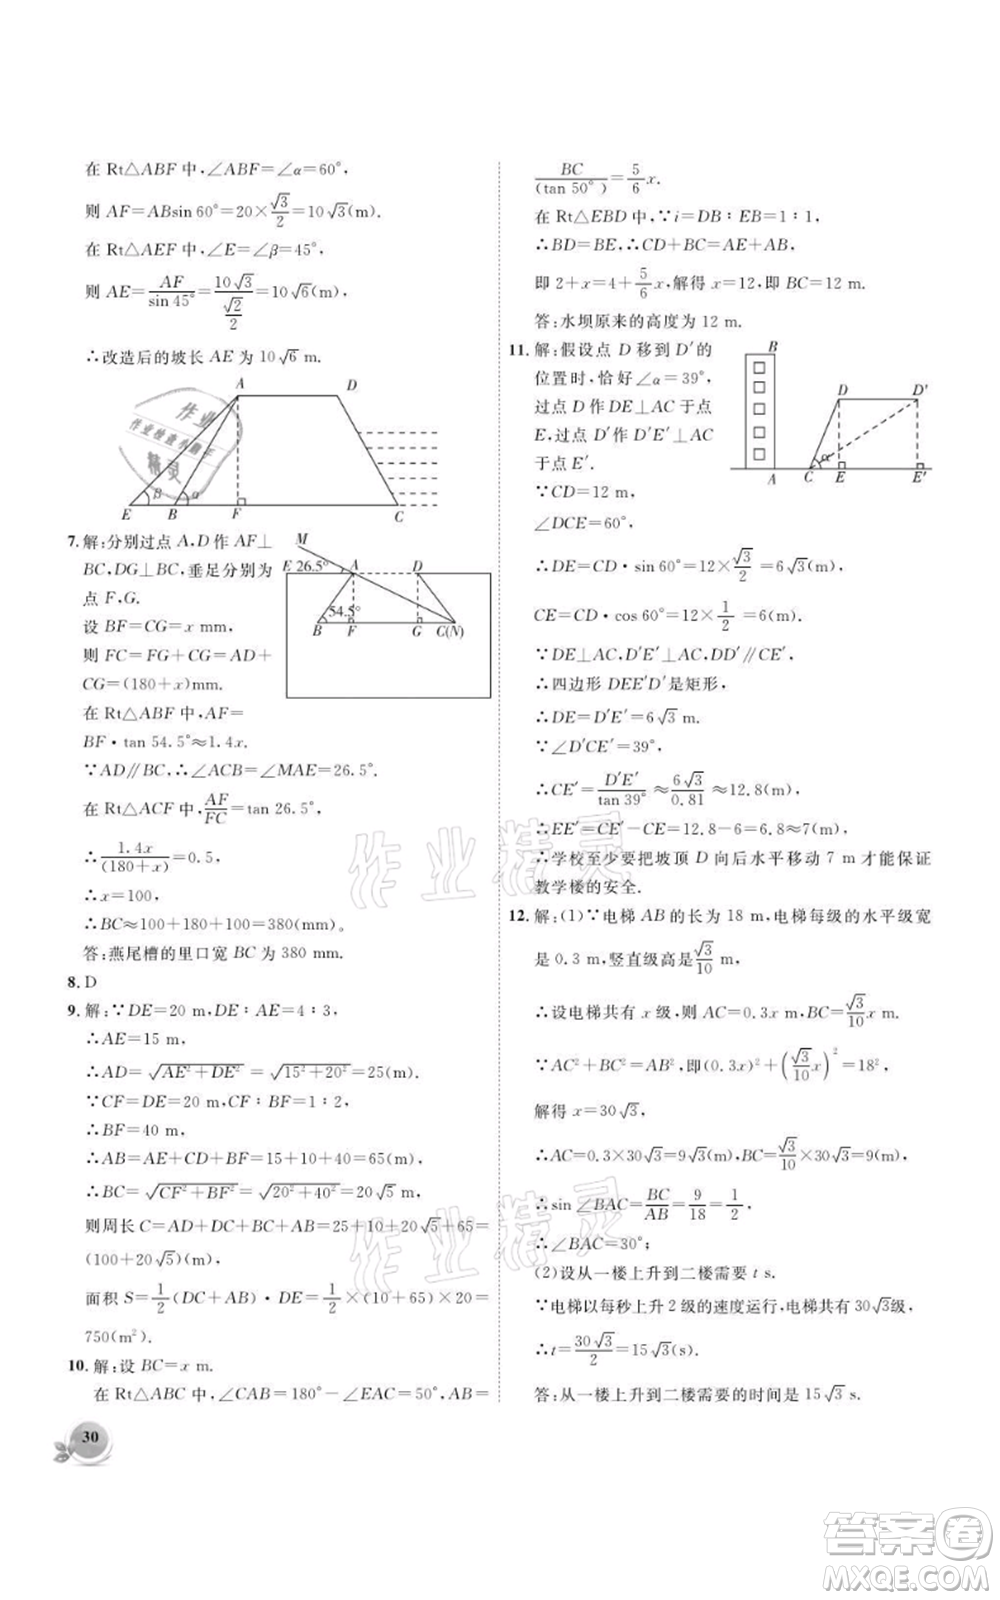 在 Rt△ABF 中,∠ABF=∠α=60°,
则 AF=ABsin 60°=20×√3/2=10√3(m).
在 Rt△AEF 中,∠E=∠β=45°,
则 AE=AF/sin 45°=10√3/(√2/2)=10√6(m),
∴改造后的坡长 AE 为 10√6 m.
A D
β α
E B F C
7. 解:分别过点 A,D 作 AF⊥
BC,DG⊥BC,垂足分别为
点 F,G.
设 BF=CG=x mm,
则 FC=FG+CG=AD+
CG=(180+x)mm.
在 Rt△ABF 中,AF=
BF·tan 54.5°≈1.4x.
M
E 26.5° A D
54.5°
B F G C(N)
∵AD∥BC,∴∠ACB=∠MAE=26.5°.
在 Rt△ACF 中,AF/FC=tan 26.5°,
∴1.4x/(180+x)=0.5,
∴x=100,
∴BC≈100+180+100=380(mm).
答:燕尾槽的里口宽 BC 为 380 mm.
8. D
9. 解:∵DE=20 m,DE∶AE=4∶3,
∴AE=15 m,
∴AD=√(AE²+DE²)=√(15²+20²)=25(m).
∵CF=DE=20 m,CF∶BF=1∶2,
∴BF=40 m,
∴AB=AE+EF+BF=15+10+40=65(m).
∴BC=√(CF²+BF²)=√(20²+40²)=20√5(m),
则周长 C=AD+DC+BC+AB=25+10+20√5+65=
(100+20√5)(m),
面积 S=1/2(DC+AB)·DE=1/2×(10+65)×20=
750(m²).
10. 解:设 BC=x m.
在 Rt△ABC 中,∠CAB=180°-∠EAC=50°,AB=
BC/(tan 50°)=5/6x.
在 Rt△EBD 中,∵i=DB∶EB=1∶1,
∴BD=BE,∴CD+BC=AE+AB,
即 2+x=4+5/6x,解得 x=12,即 BC=12 m.
答:水坝原来的高度为 12 m.
11. 解:假设点 D 移到 D′的
位置时,恰好∠α=39°,
过点 D 作 DE⊥AC 于点
E,过点 D′作 D′E′⊥AC
于点 E′.
∵CD=12 m,
∠DCE=60°,
B
D D′
α
A C E E′
∴DE=CD·sin 60°=12×√3/2=6√3(m),
CE=CD·cos 60°=12×1/2=6(m).
∵DE⊥AC,D′E′⊥AC,DD′∥CE′,
∴四边形 DEE′D′是矩形,
∴DE=D′E′=6√3 m.
∵∠D′CE′=39°,
∴CE′=D′E′/tan 39°≈6√3/0.81≈12.8(m),
∴EE′=CE′-CE=12.8-6≈7(m).
∴学校至少要把坡顶 D 向后水平移动 7 m 才能保证
教学楼的安全.
12. 解:(1)∵电梯 AB 的长为 18 m,电梯每级的水平级宽
是 0.3 m,竖直级高是√3/10 m,
∴设电梯共有 x 级,则 AC=0.3x m,BC=√3/10x m.
∵AC²+BC²=AB²,即(0.3x)²+(√3/10x)²=18²,
解得 x=30√3,
∴AC=0.3×30√3=9√3(m),BC=√3/10×30√3=9(m),
∴sin ∠BAC=BC/AB=9/18=1/2,
∴∠BAC=30°;
(2)设从一楼上升到二楼需要 t s.
∵电梯以每秒上升 2 级的速度运行,电梯共有 30√3级,
∴t=30√3/2=15√3(s).
答:从一楼上升到二楼需要的时间是 15√3 s.
30
作业精灵
作业检查小助手
作业精灵
作业精灵
答案卷
MXQE.COM